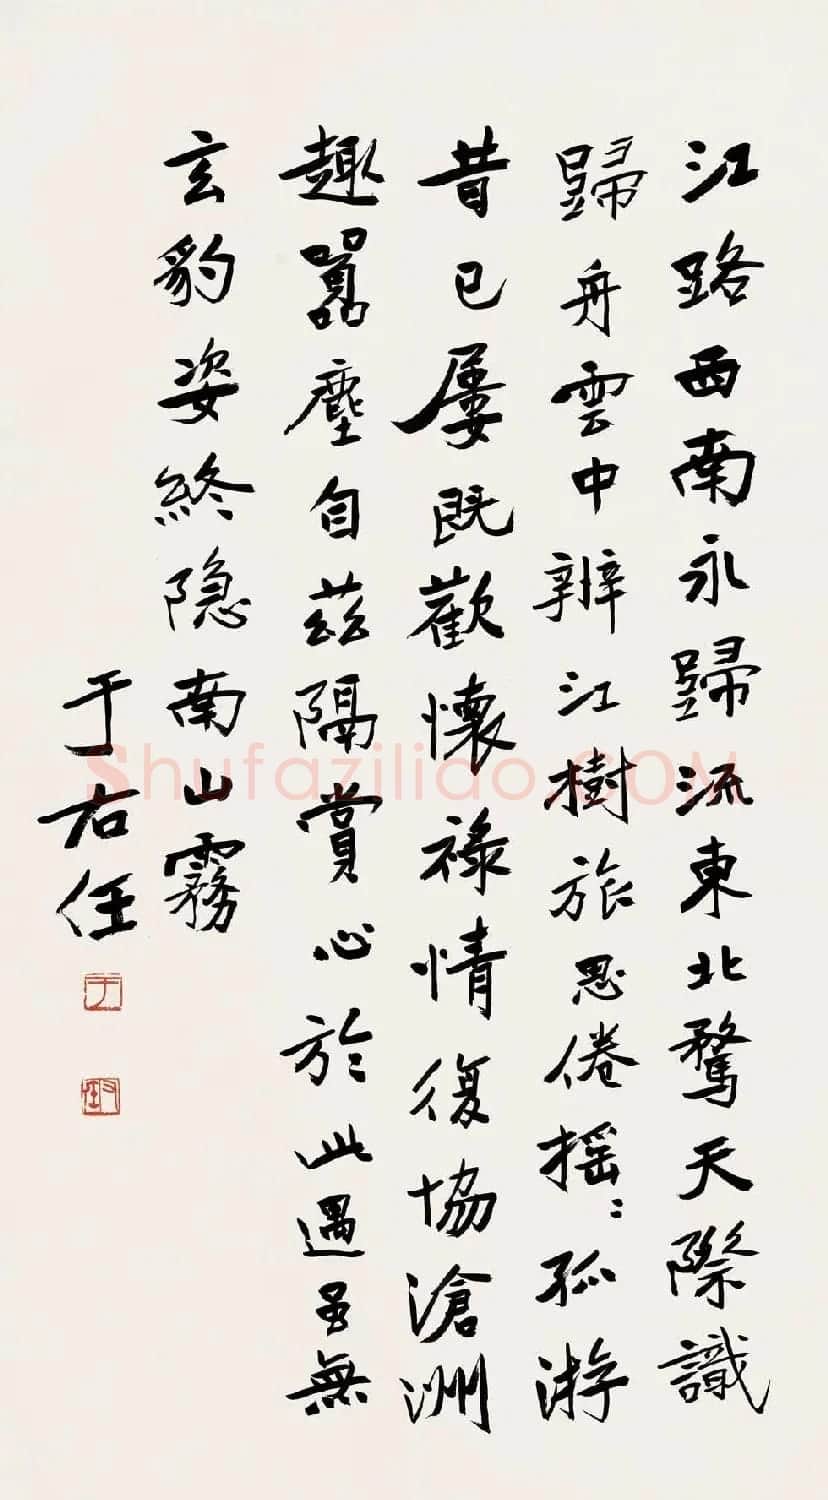 江路西南永歸流東北騖天際識
歸舟雲中辨江樹旅思倦摇〻孤游
昔已屢既歡懷祿情復協滄洲
趣囂塵自茲隔賞心於此遇虽無
玄豹姿終隐南山霧
于右任
于
右任
Shufazilido.COM